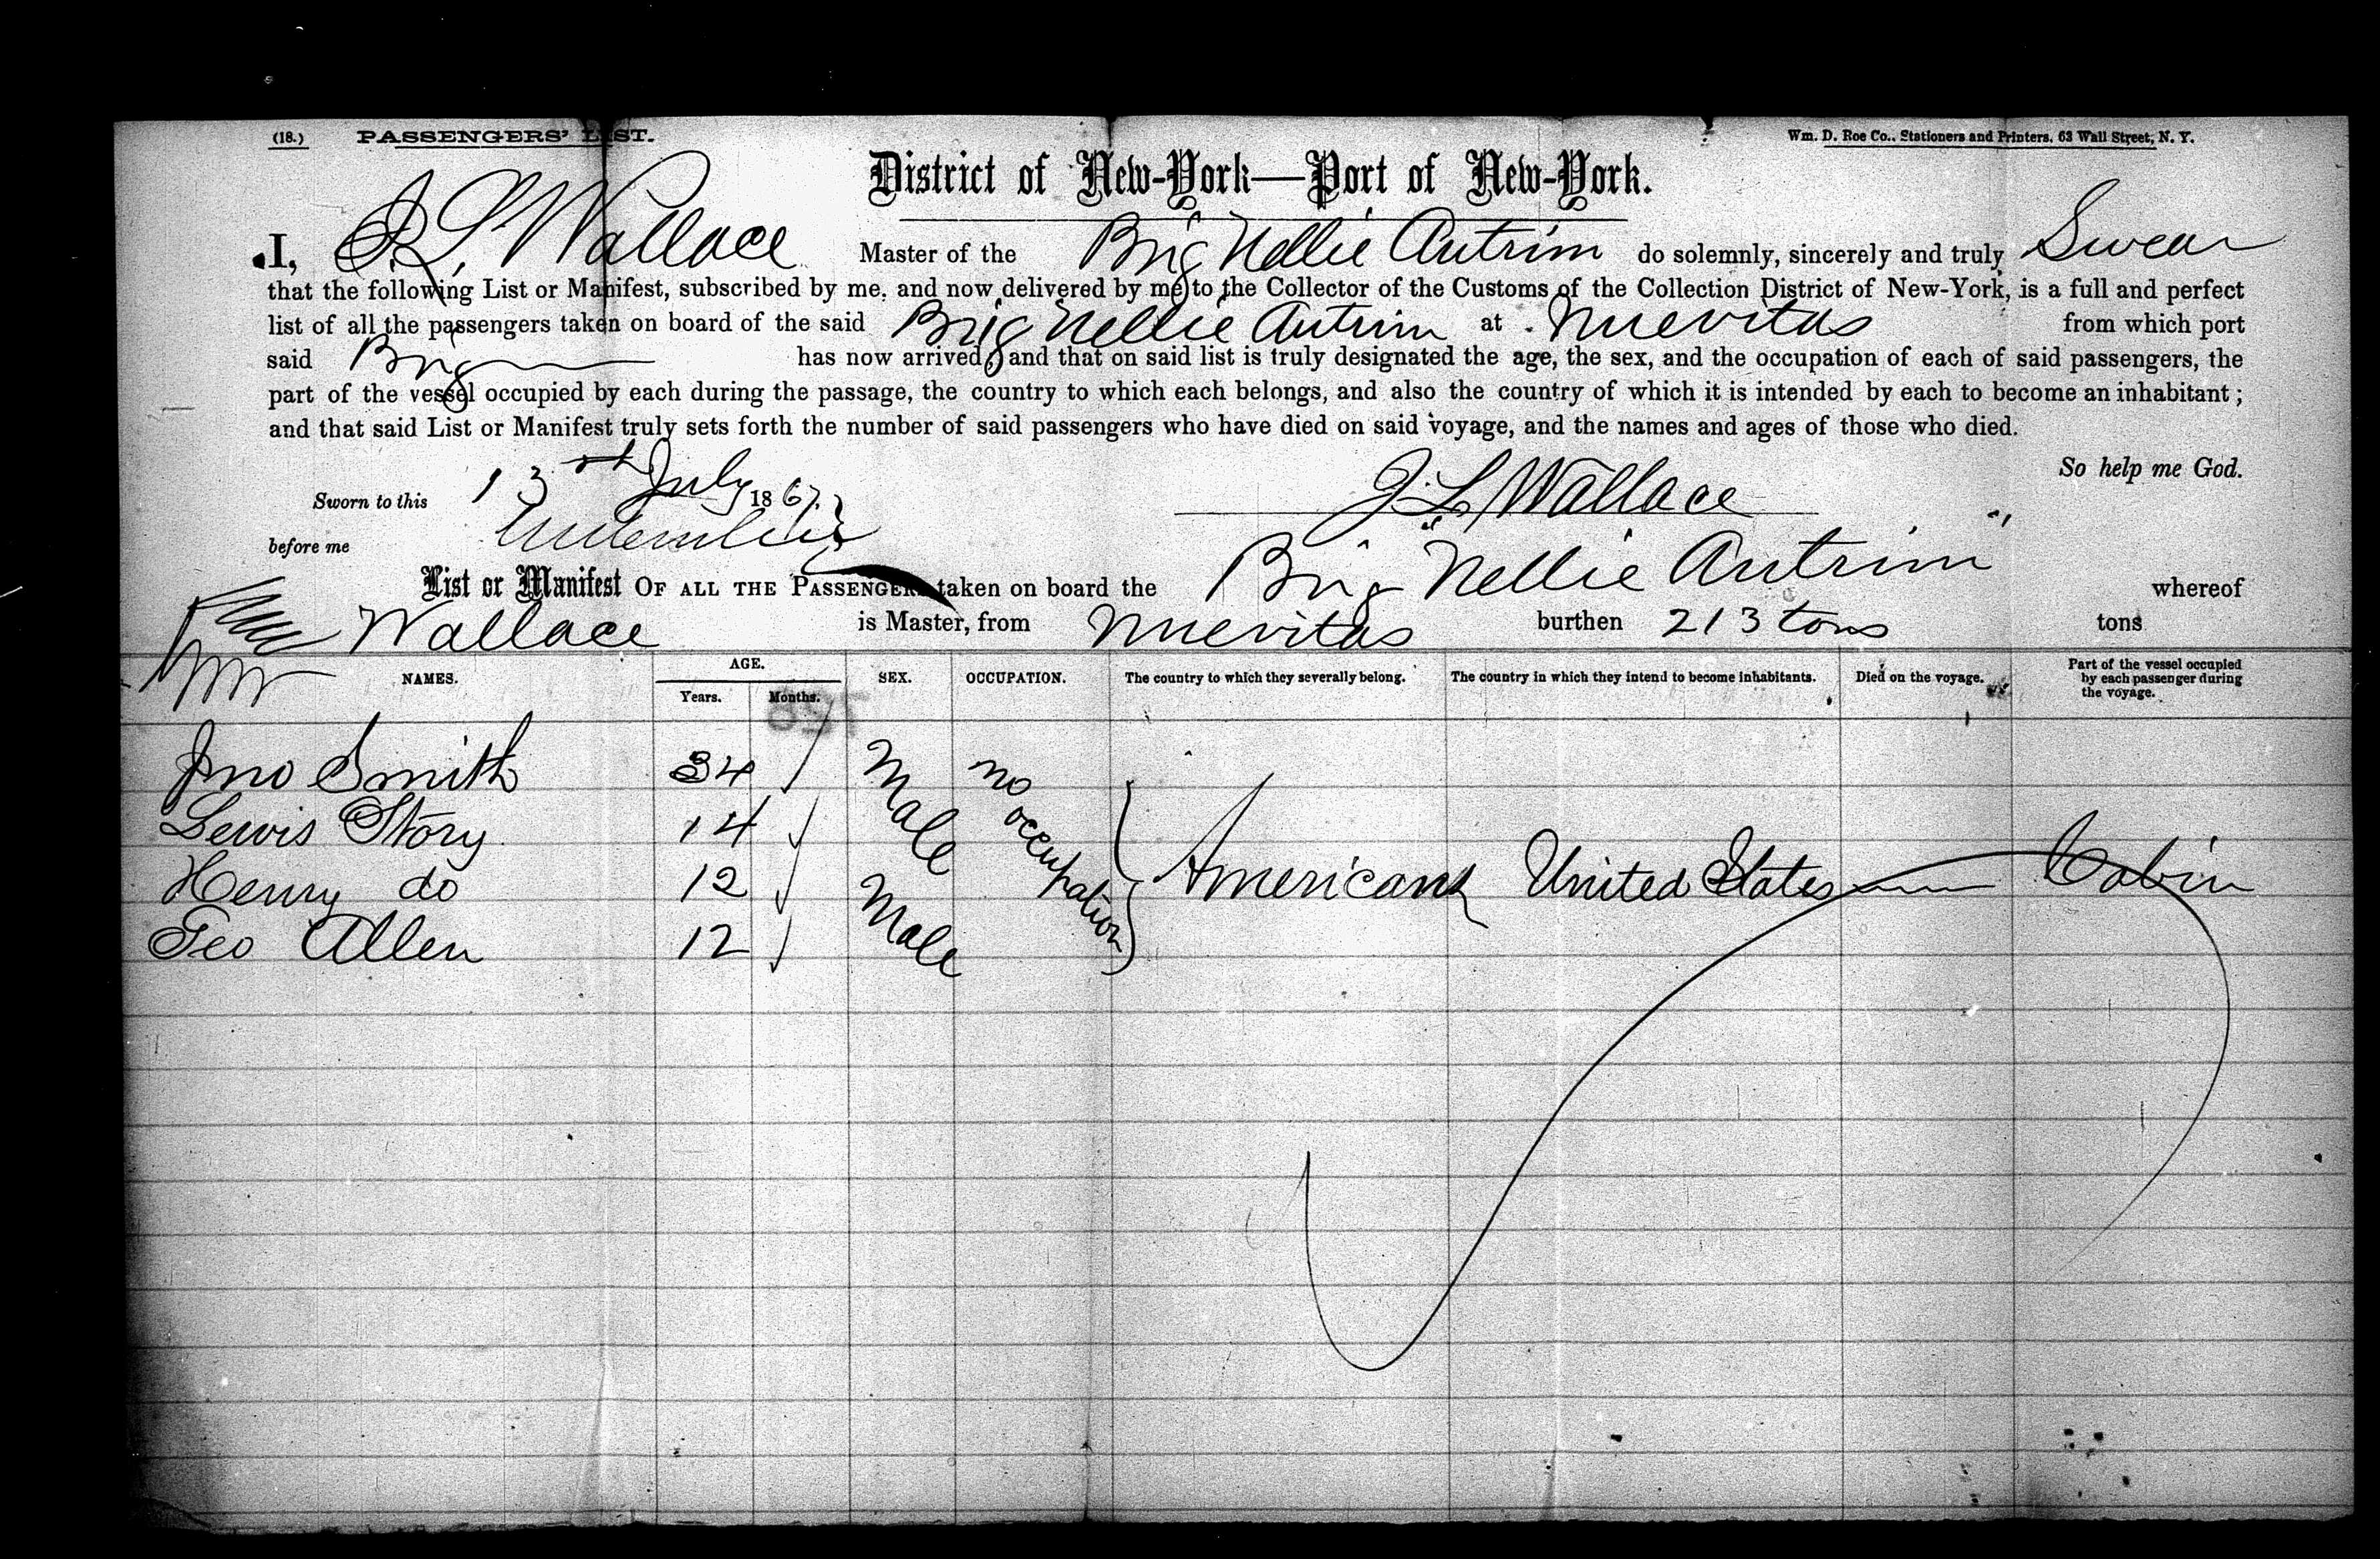 (18.) PASSENGERS' LIST. Wm. D. Roe Co., Stationers and Printers, 63 Wall Street, N. Y.
District of New-York—Port of New-York.
I, J. L. Wallace Master of the Brig Nellie Antrim do solemnly, sincerely and truly Swear
that the following List or Manifest, subscribed by me, and now delivered by me to the Collector of the Customs of the Collection District of New-York, is a full and perfect
list of all the passengers taken on board of the said Brig Nellie Antrim at Nuevitas from which port
said Brig has now arrived, and that on said list is truly designated the age, the sex, and the occupation of each of said passengers, the
part of the vessel occupied by each during the passage, the country to which each belongs, and also the country of which it is intended by each to become an inhabitant;
and that said List or Manifest truly sets forth the number of said passengers who have died on said voyage, and the names and ages of those who died.
So help me God.
Sworn to this 13th July 1867 J. L. Wallace
before me
List or Manifest OF ALL THE PASSENGERS taken on board the Brig "Nellie Antrim" whereof
Wallace is Master, from Nuevitas burthen 213 tons tons
NAMES. AGE. Years. Months. SEX. OCCUPATION. The country to which they severally belong. The country in which they intend to become inhabitants. Died on the voyage. Part of the vessel occupied by each passenger during the voyage.
Jno Smith 34 Male no occupation
Lewis Story 14
Henry do 12 Male Americans United States Cabin
Geo Allen 12